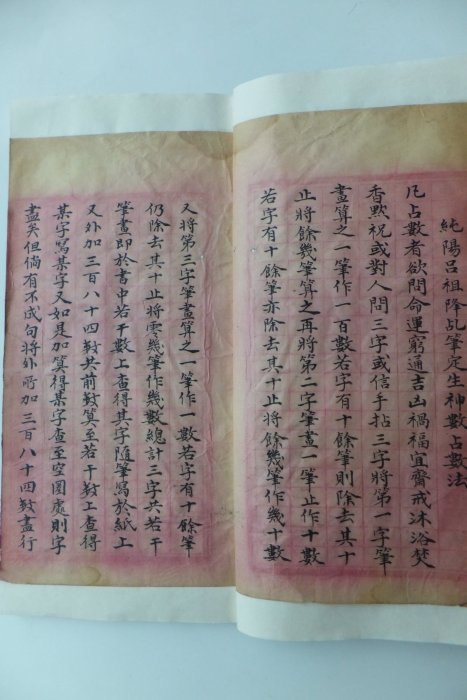 純陽呂祖降乩筆定生神數占數法
凡占數者欲問命運窮通吉凶禍福宜齋戒沐浴焚
香默祝或對人問三字或信手拈三字將第一字筆
畫算之一筆作一百數若字有十餘筆則除去其十
止將餘幾筆算之再將第二字筆畫一筆止作十數
若字有十餘筆亦除去其十止將餘幾筆作幾十數
又將第三字筆畫算之一筆作一數若字有十餘筆
仍除去其十止將零幾筆作幾數總計三字共若干
筆畫即於書中若干數上查得其字隨筆寫於紙上
又外加三百八十四数共前数算至若干数上查得
某字寫某字又如是加算得某字查至空圈處則字
盡矣但倘有不成句將外所加三百八十四数盡行